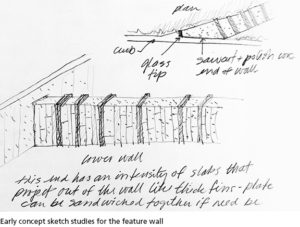 plan
curb
glass
tip
sawcut + polish
end of wall
lower wall
this end has an intensity of slabs that
project out of the wall like thick fins - plate
can be sandwiched together if need be
Early concept sketch studies for the feature wall